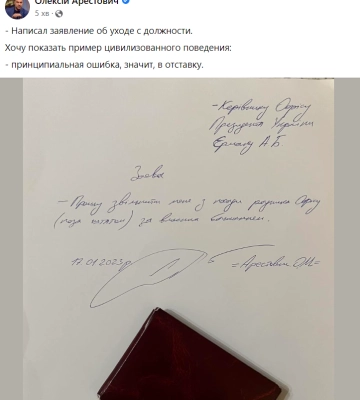 Олексій Арестович
5 хв ·
- Написал заявление об уходе с должности.
Хочу показать пример цивилизованного поведения:
- принципиальная ошибка, значит, в отставку.
- Керівнику Офісу
Президента України
Єрмаку А.Б
Заява
- Прошу звільнити мене з посади радника Офісу
(поза штатом) за власним бажанням.
17.01.2023р
=Арестович О.М=